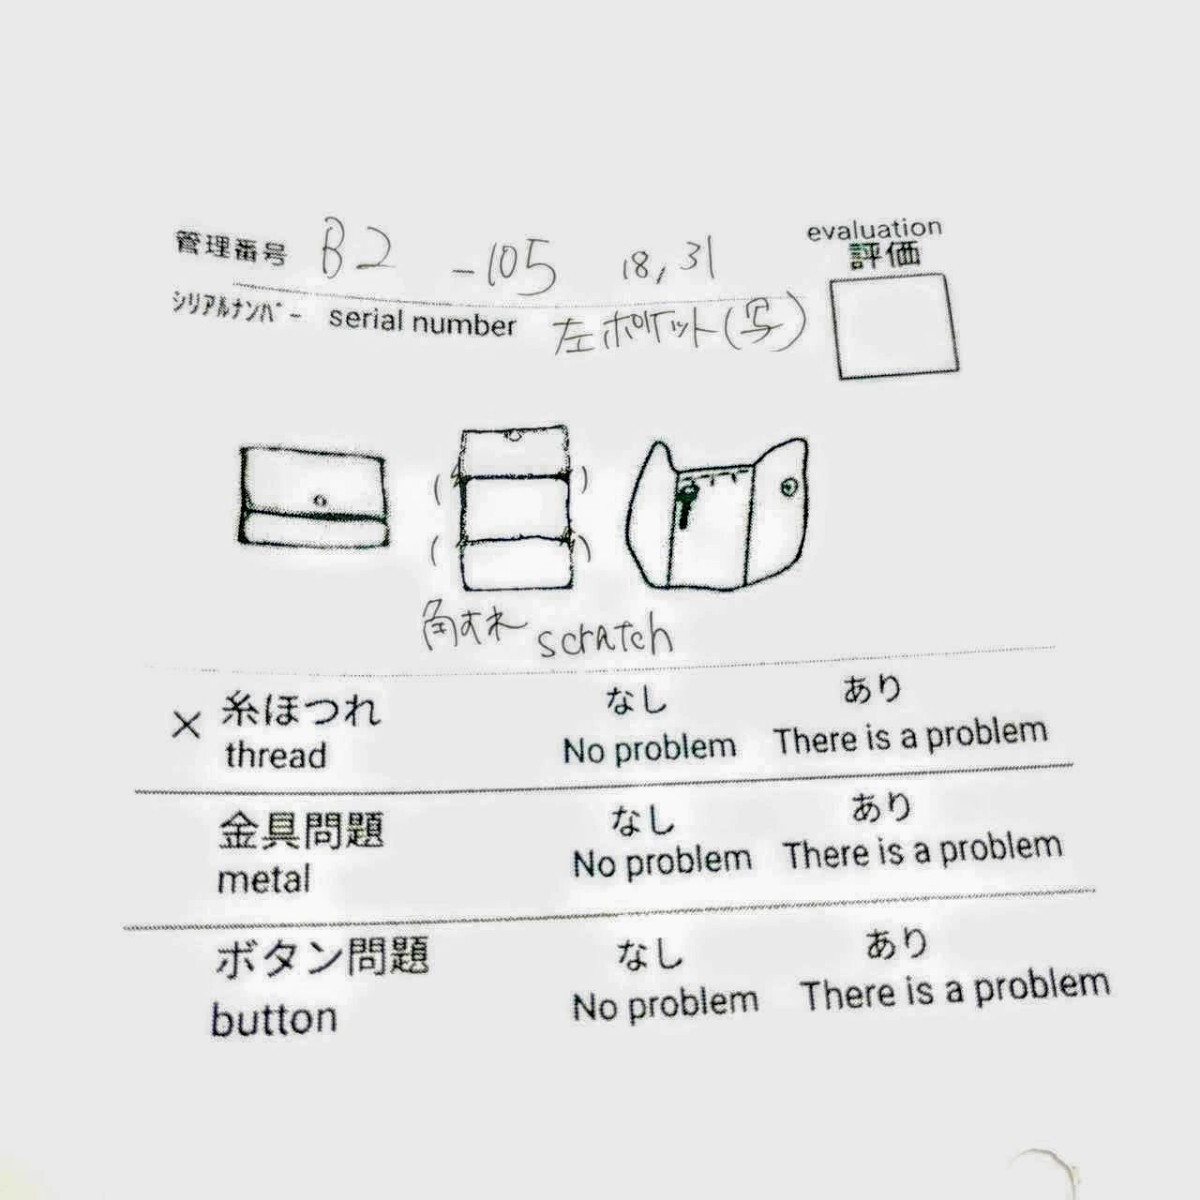 管理番号 B2 -105 18,31
evaluation
評価
シリアルナンバー serial number 左ポケット(写)
角すれ scratch
× 糸ほつれ なし あり
thread No problem There is a problem
金具問題 なし あり
metal No problem There is a problem
ボタン問題 なし あり
button No problem There is a problem